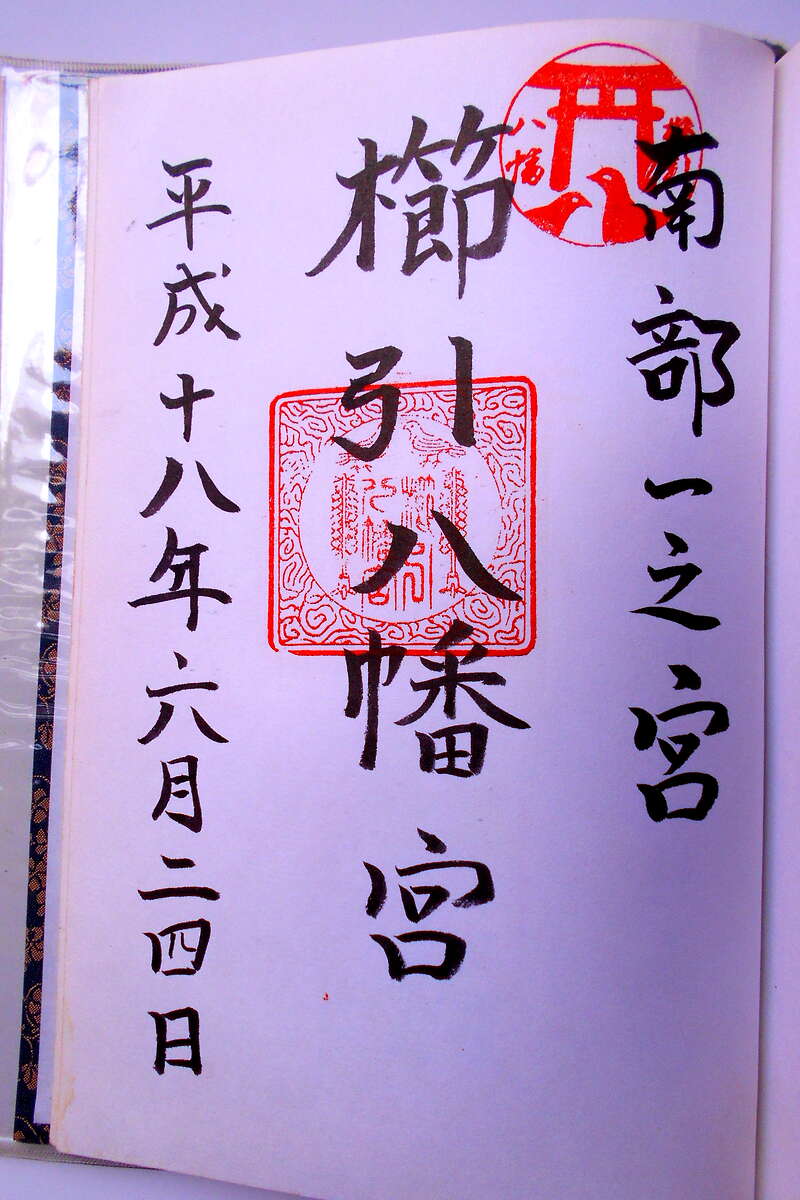 南部一之宮
櫛引八幡宮
平成十八年六月二四日
八幡